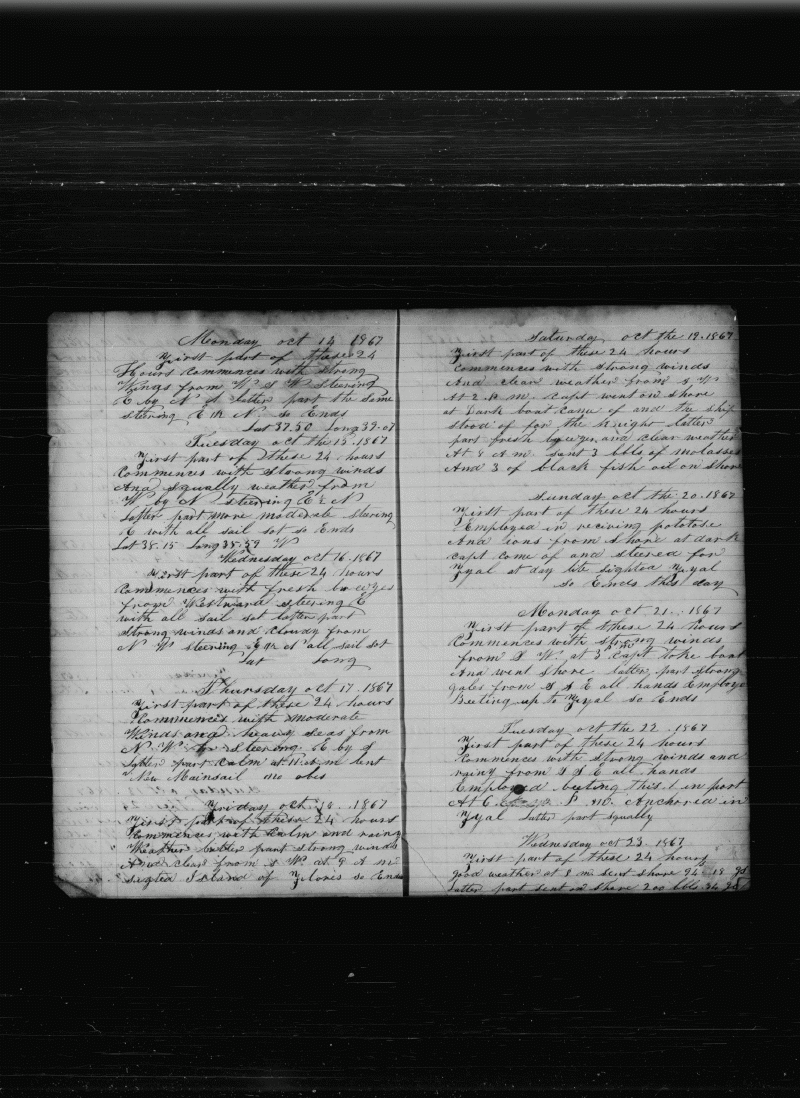 Monday oct 14 1867
First part of these 24
Hours Commences with strong
Wings from W S W Steering
E by N latter part the same
steering E N so Ends
Lat 37.50 Long 39.07
Tuesday oct the 15. 1867
First part of these 24 hours
Commences with strong winds
And squally weather from
W by N steering E N
Latter part more moderate steering
E with all sail sot so Ends
Lat 38.15 Long 35.59 W
Wednesday oct 16. 1867
First part of these 24 hours
Commences with fresh
from Westward steering E
with all sail sot latter part
strong winds and cloudy from
N W steering E N all sail sot
Lat Long
Thursday oct 17. 1867
First part of these 24 hours
Commences with moderate
Winds and heavy seas from
N. W. steering E by S
Latter part Calm at m bent
New Mainsail no obes
Friday oct 18. 1867
First part of these 24 hours
Commences with Calm and rainy
Weather latter part strong winds
And clear from S W. at 9 A m
sigted Island of Flores so Ends
Saturday oct the 19. 1867
First part of these 24 hours
Commences with strong winds
And clear weather from S W
At 2 P m. Capt went on shore
at Dark boat Came of and the ship
stood of for the night latter
part fresh and clear weather
At 8 A m. sent 3 bbls of molasses
And 3 of black fish oil on shore
Sunday oct the 20. 1867
First part of these 24 hours
Employed in reciving potatose
And ions from shore at dark
Capt come of and steered for
Fyal at day lite sighted Fyal
so Ends this day
Monday oct 21. 1867
First part of these 24 hours
Commences with strong winds
from S W. at 3 P m Capt toke boat
And went shore latter part strong
gales from S S E all hands Employe
Beeting up to Fyal so Ends
Tuesday oct the 22. 1867
First part of these 24 hours
Commences with strong winds and
rainy from S S E all hands
Employed beeting this in port
At 6 P m. Anchored in
Fyal latter part squally
Wednesday oct 23. 1867
First part of these 24 hours
good weather at 8 m sent shore 94
Latter part sent on shore 200 bbls